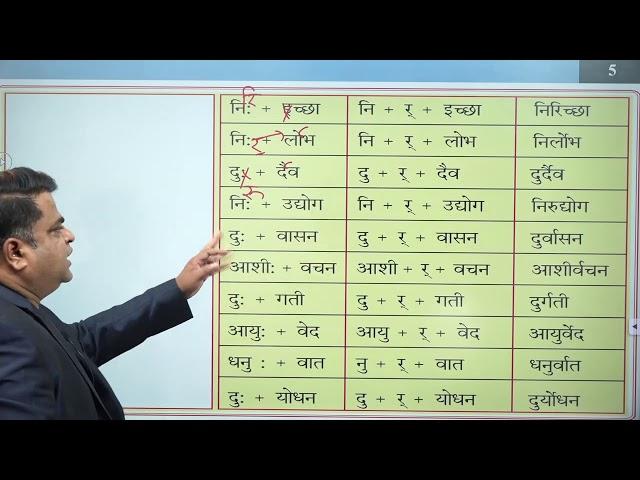 5
निः + इच्छा नि + र् + इच्छा निरिच्छा
निः + लोभ नि + र् + लोभ निर्लोभ
दुः + दैव दु + र् + दैव दुर्दैव
निः + उद्योग नि + र् + उद्योग निरुद्योग
दुः + वासन दु + र् + वासन दुर्वासन
आशीः + वचन आशी + र् + वचन आशीर्वचन
दुः + गती दु + र् + गती दुर्गती
आयुः + वेद आयु + र् + वेद आयुर्वेद
धनु : + वात नु + र् + वात धनुर्वात
दुः + योधन दु + र् + योधन दुर्योधन